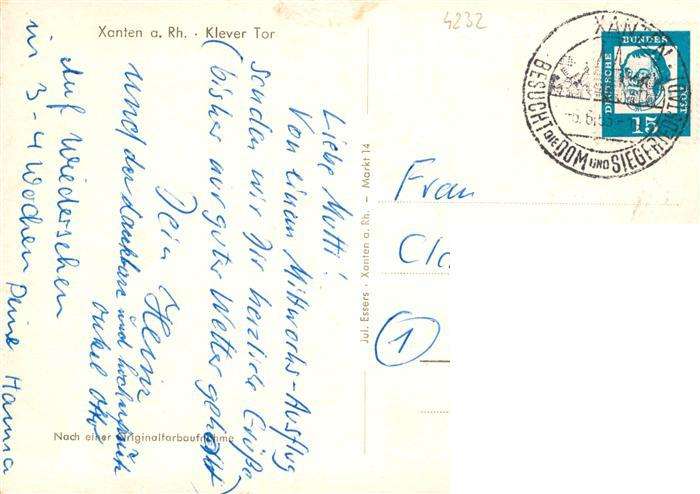 Xanten a. Rh. · Klever Tor
4232
XANTEN
BESUCHT DIE DOM UND SIEGFRIEDSTADT
DEUTSCHE BUNDESPOST
15
Liebe Mutti!
Von einem Mittwochs-Ausflug
senden wir Dir herzliche Grüße
(bisher nur gutes Wetter gehabt)
Dein Heinz
und der dankbare und
Onkel Otto
Auf Wiedersehen
in 3-4 Wochen Deine Hanna
Jul. Essers · Xanten a. Rh. – Markt 14
Frau
Cla
1
Nach einer Originalfarbaufnahme